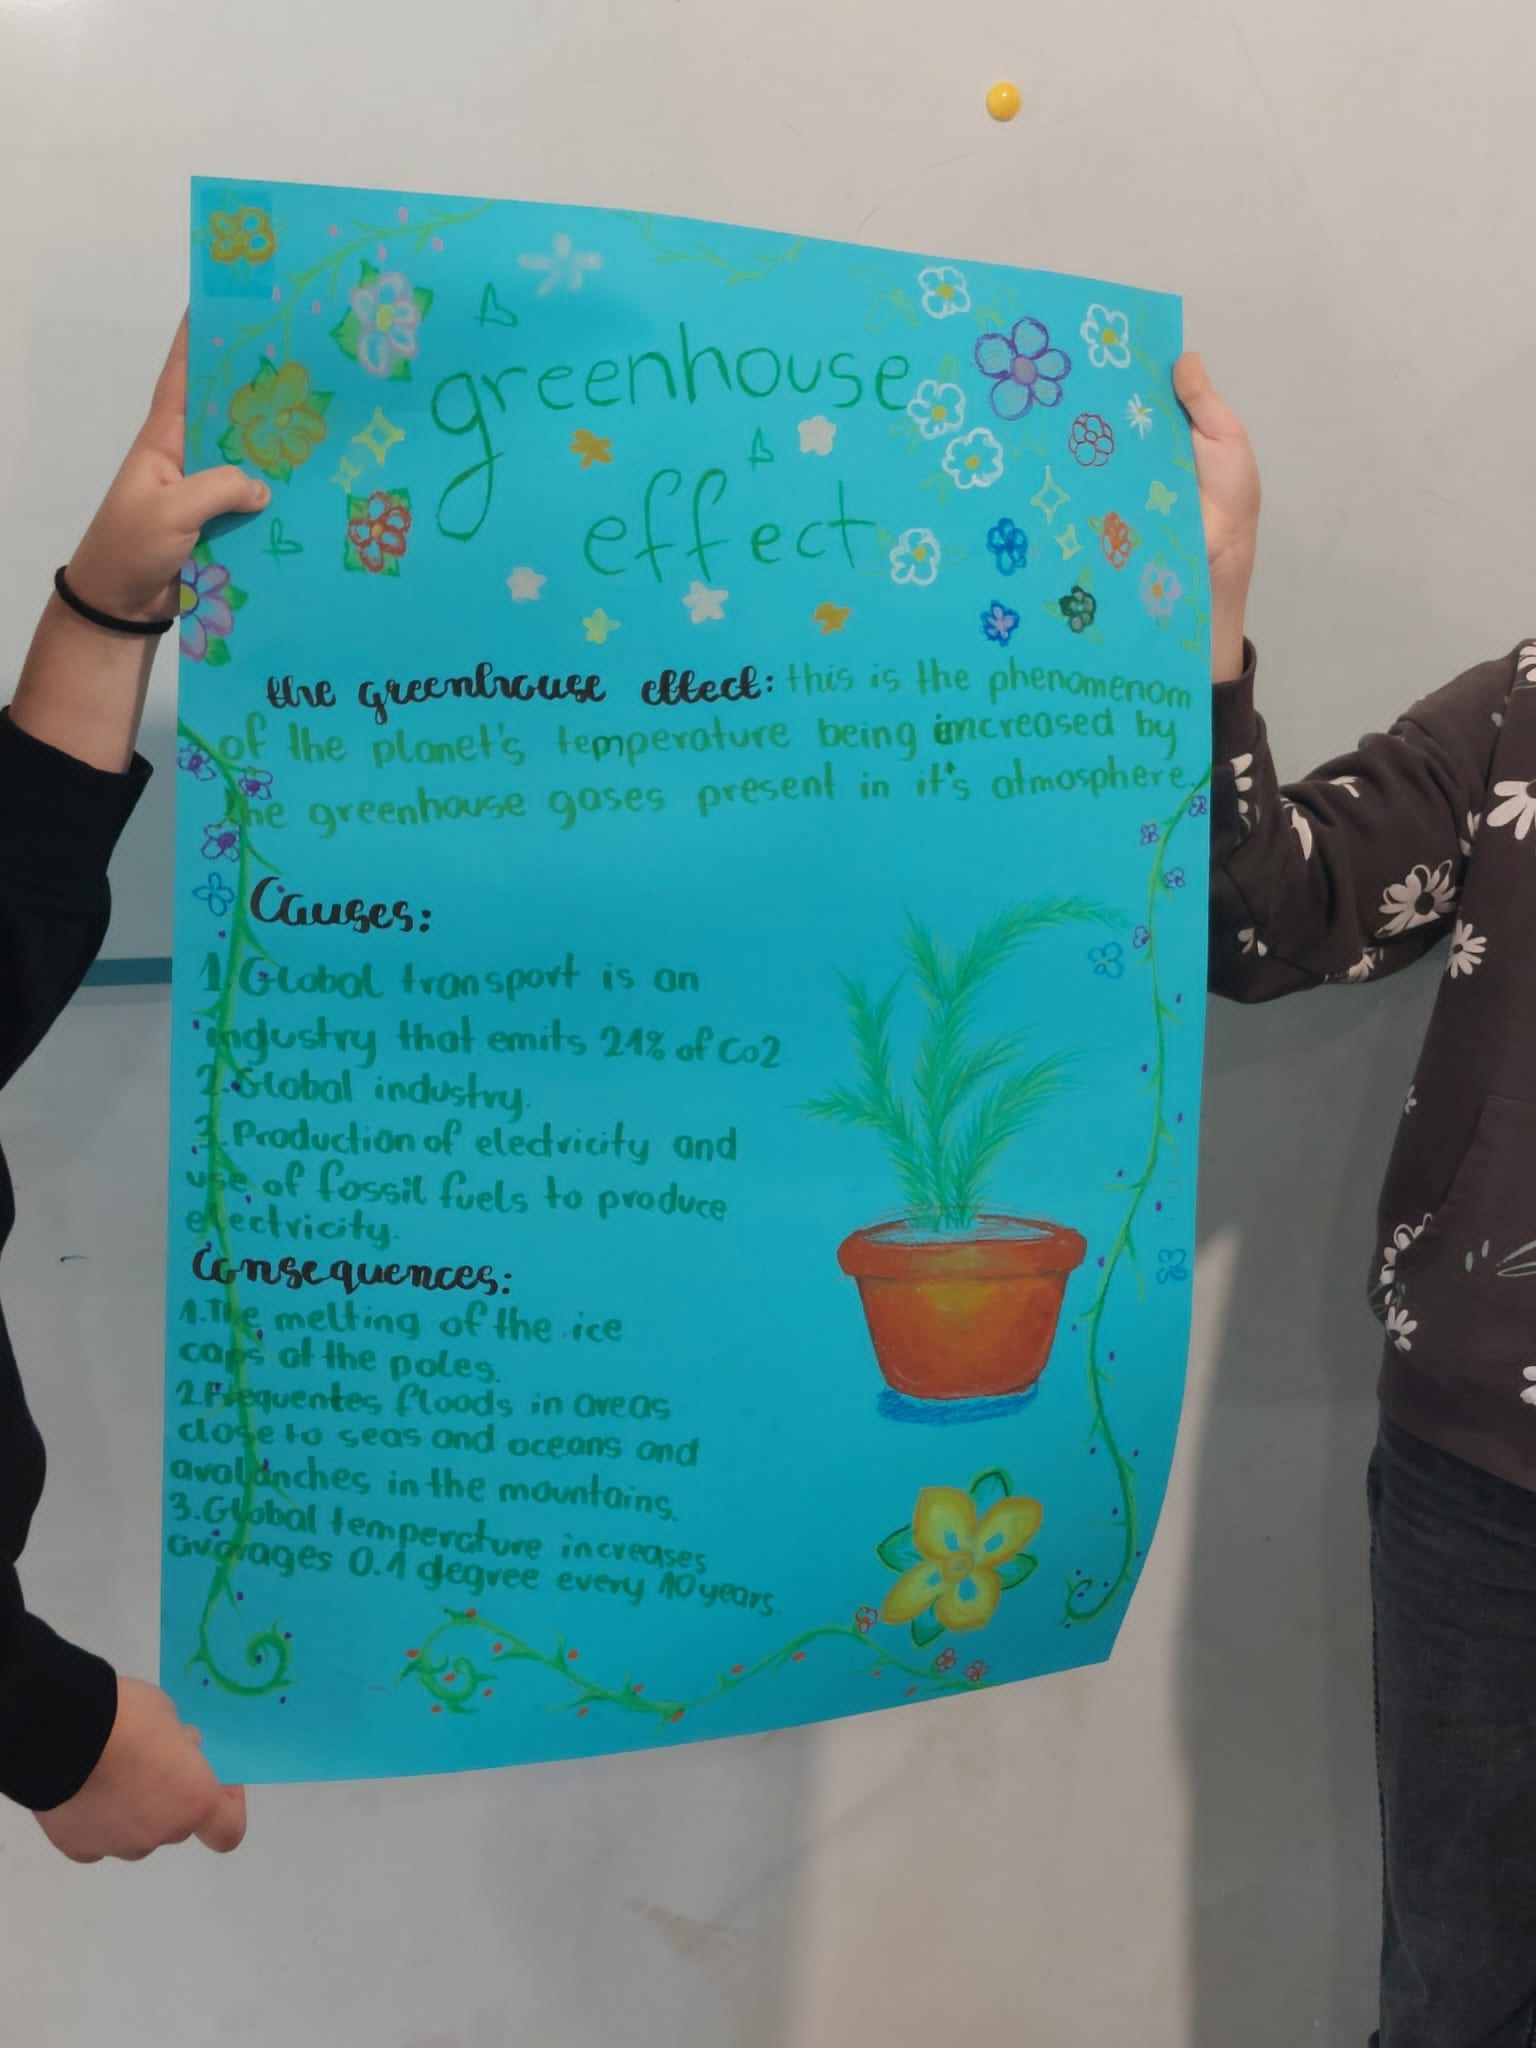 greenhouse
effect
the greenhouse effect: this is the phenomenom
of the planet's temperature being increased by
the greenhouse gases present in it's atmosphere.
Causes:
1. Global transport is an
industry that emits 21% of Co2
2. Global industry.
3. Production of electricity and
use of fossil fuels to produce
electricity.
Consequences:
1. The melting of the ice
caps at the poles.
2. Frequentes floods in areas
close to seas and oceans and
avalanches in the mountains.
3. Global temperature increases
averages 0.1 degree every 10 years.